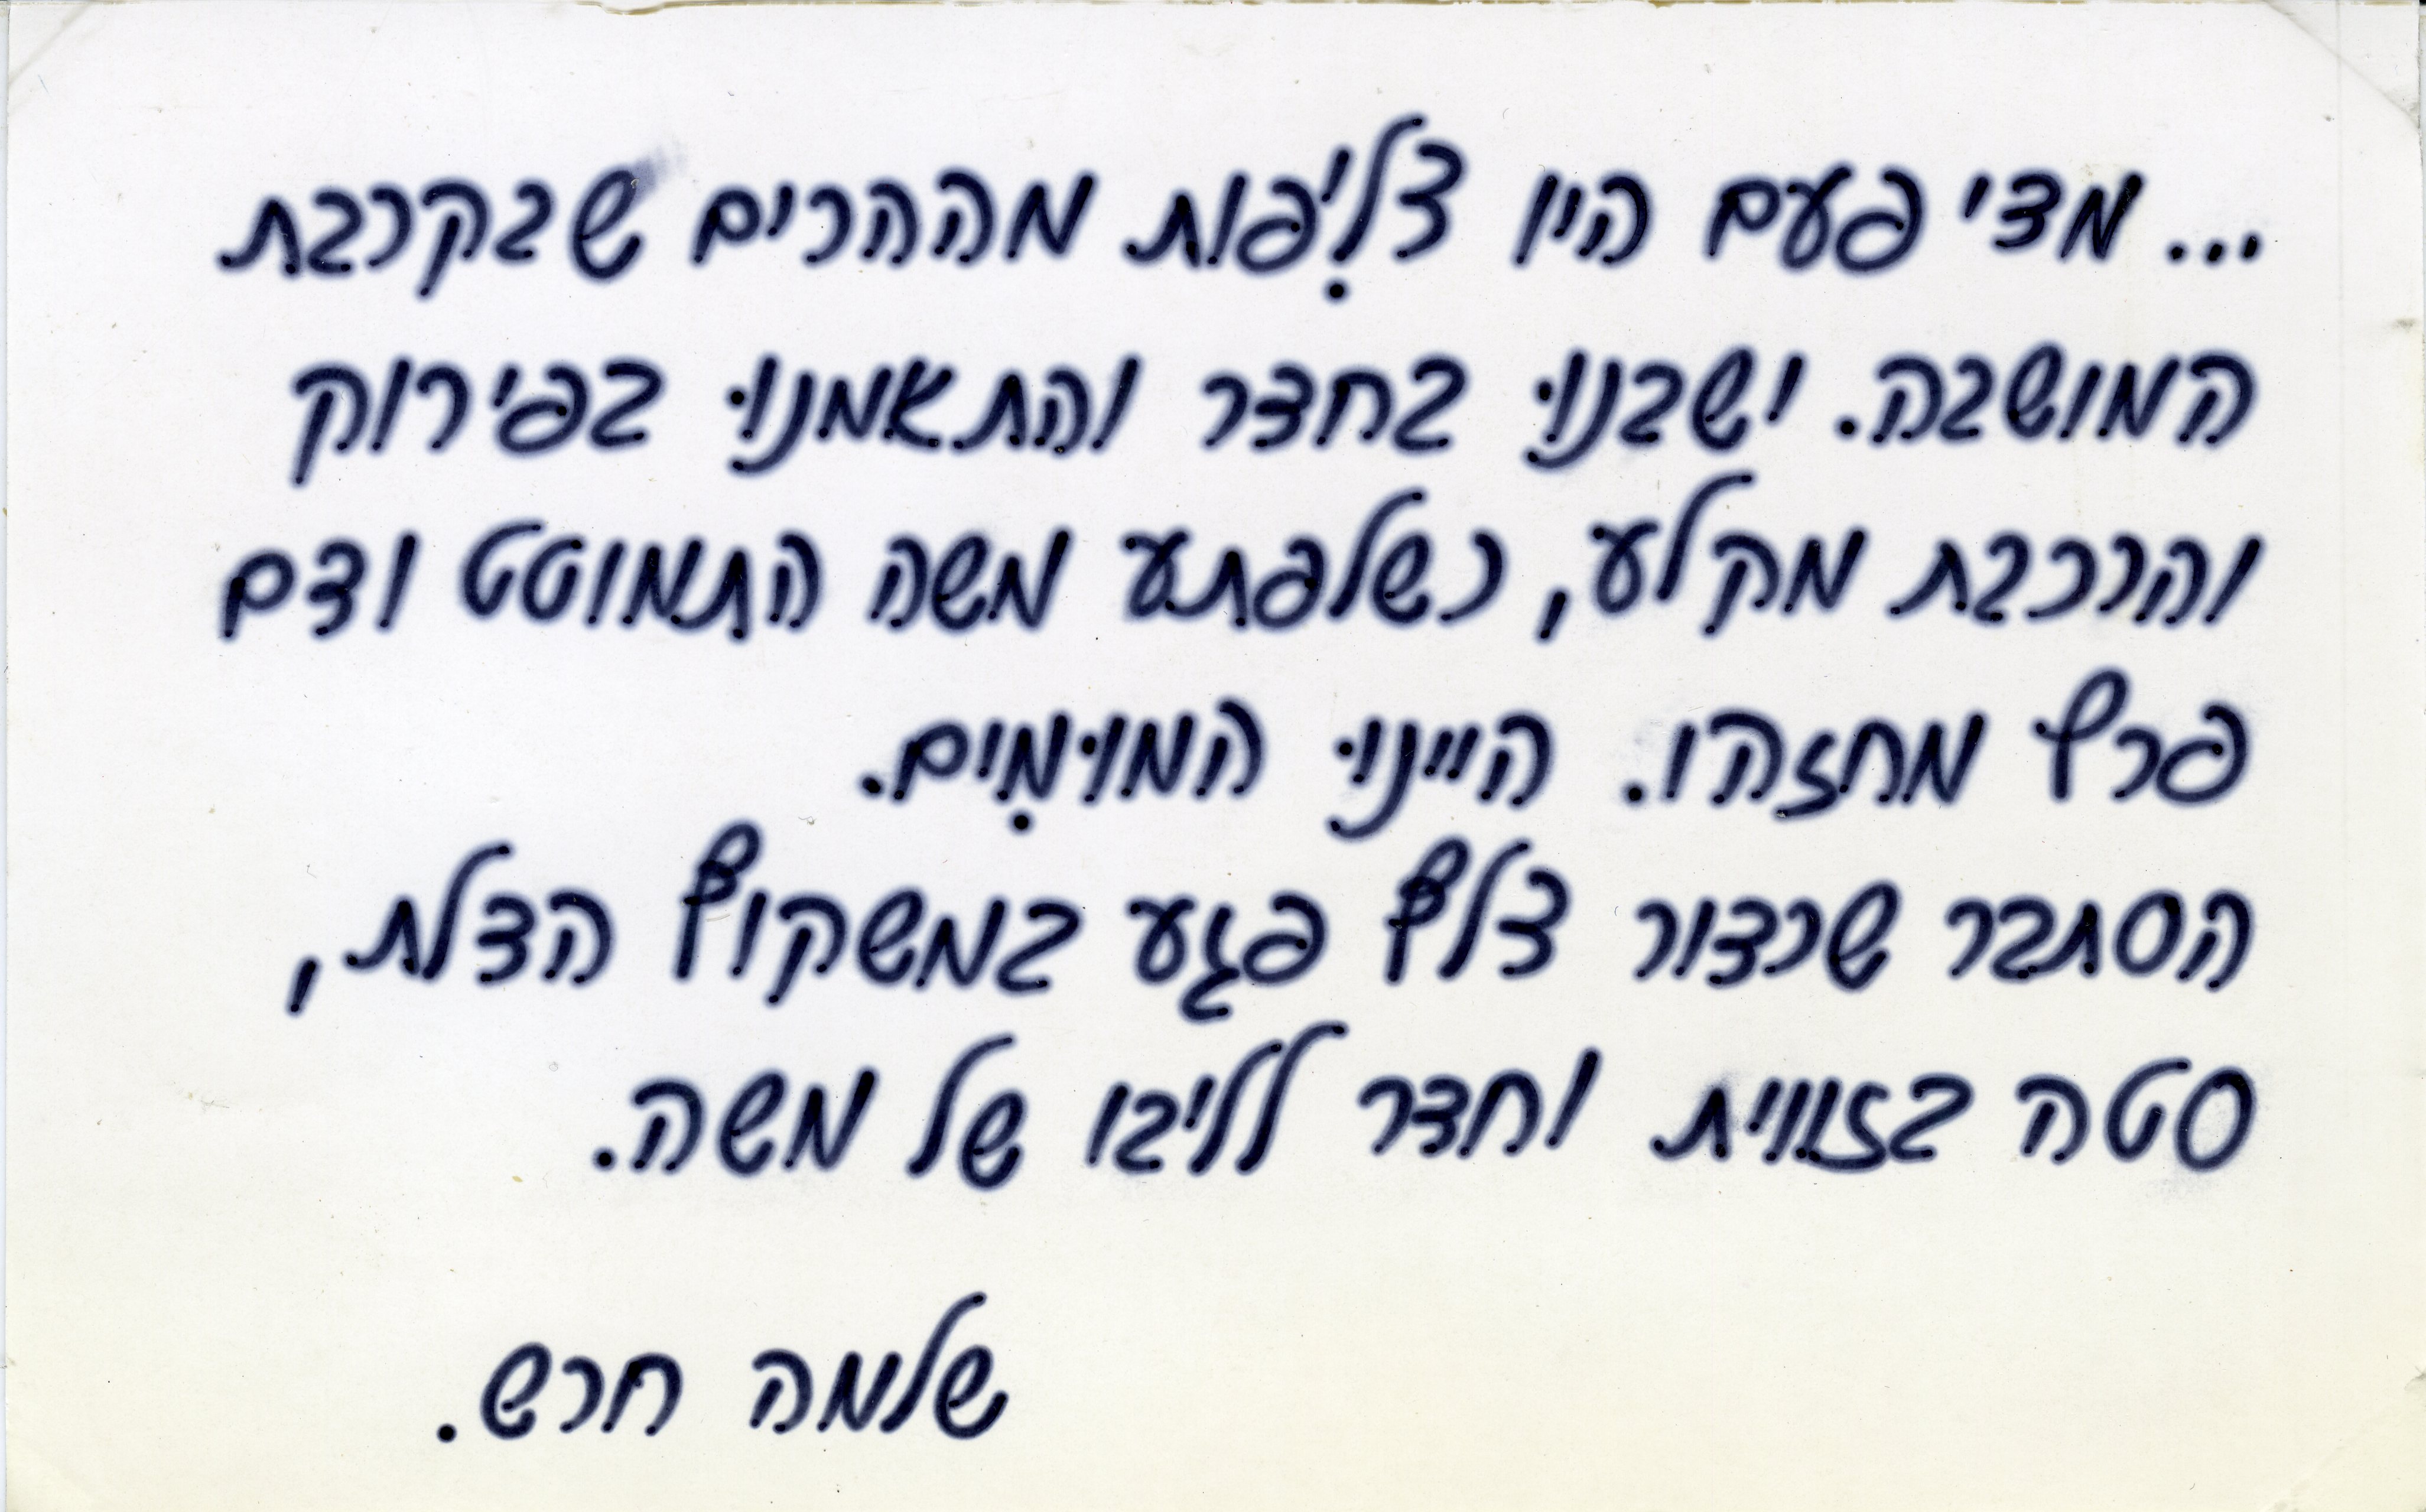 ... מדי פעם היו צליפות מההרים שבקרבת
המושבה. ישבנו בחדר והתאמנו בפירוק
והרכבת מקלע, כשלפתע משה התמוטט ודם
פרץ מחזהו. היינו המומים.
הסתבר שכדור צלף פגע במשקוף הדלת,
סטה בזווית וחדר לליבו של משה.
שלמה חרש.